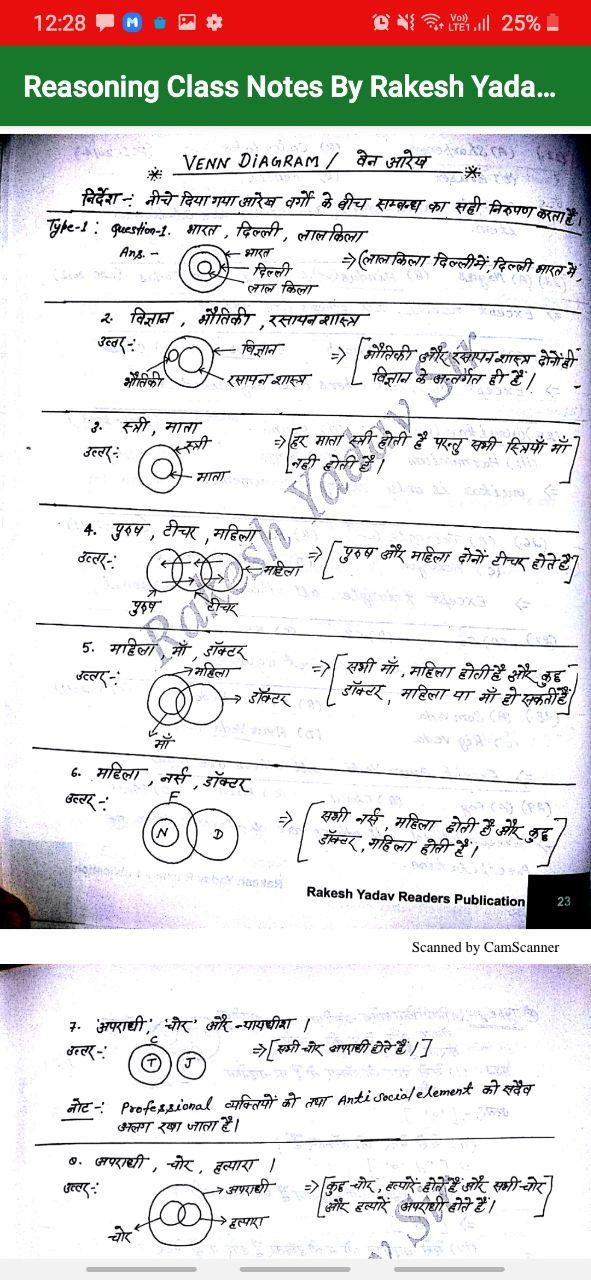 12:28
Vo)) LTE1 25%
Reasoning Class Notes By Rakesh Yada...
VENN DIAGRAM / वेन आरेख
निर्देश -: नीचे दिया गया आरेख वर्गो के बीच सम्बन्ध का सही निरुपण करता है
Type-1 : Question-1. भारत , दिल्ली , लाल किला
Ans. -
भारत
दिल्ली
लाल किला
=> (लाल किला दिल्ली में, दिल्ली भारत में,
2. विज्ञान , भौतिकी , रसायन शास्त्र
उत्तर -:
विज्ञान
भौतिकी
रसायन शास्त्र
=> [भौतिकी और रसायन शास्त्र दोनों ही
विज्ञान के अन्तर्गत ही हैं।
3. स्त्री , माता
उत्तर -:
स्त्री
माता
=> [हर माता स्त्री होती है परन्तु सभी स्त्रियाँ माँ
नही होती हैं।]
4. पुरुष , टीचर , महिला
उत्तर -:
महिला
पुरुष
टीचर
=> [पुरुष और महिला दोनों टीचर होते हैं]
5. महिला , माँ , डॉक्टर
उत्तर -:
महिला
डॉक्टर
माँ
=> [सभी माँ, महिला होती है और कुछ
डॉक्टर, महिला या माँ हो सकती हैं]
6. महिला , नर्स , डॉक्टर
उत्तर -:
F
N
D
=> [सभी नर्स, महिला होती हैं और कुछ
डॉक्टर, महिला होती हैं।]
Rakesh Yadav Readers Publication 23
Scanned by CamScanner
7. 'अपराधी', 'चोर' और न्यायधीश।
उत्तर -:
C
T
J
=> [सभी चोर अपराधी होते हैं।]
नोट -: Professional व्यक्तियों को तथा Anti social element को सदैव
अलग रखा जाता है।
8. अपराधी , चोर , हत्यारा।
उत्तर -:
अपराधी
चोर
हत्यारा
=> [कुछ चोर, हत्यारे होते हैं और सभी चोर
और हत्यारे अपराधी होते हैं।]
Rakesh Yadav Sir